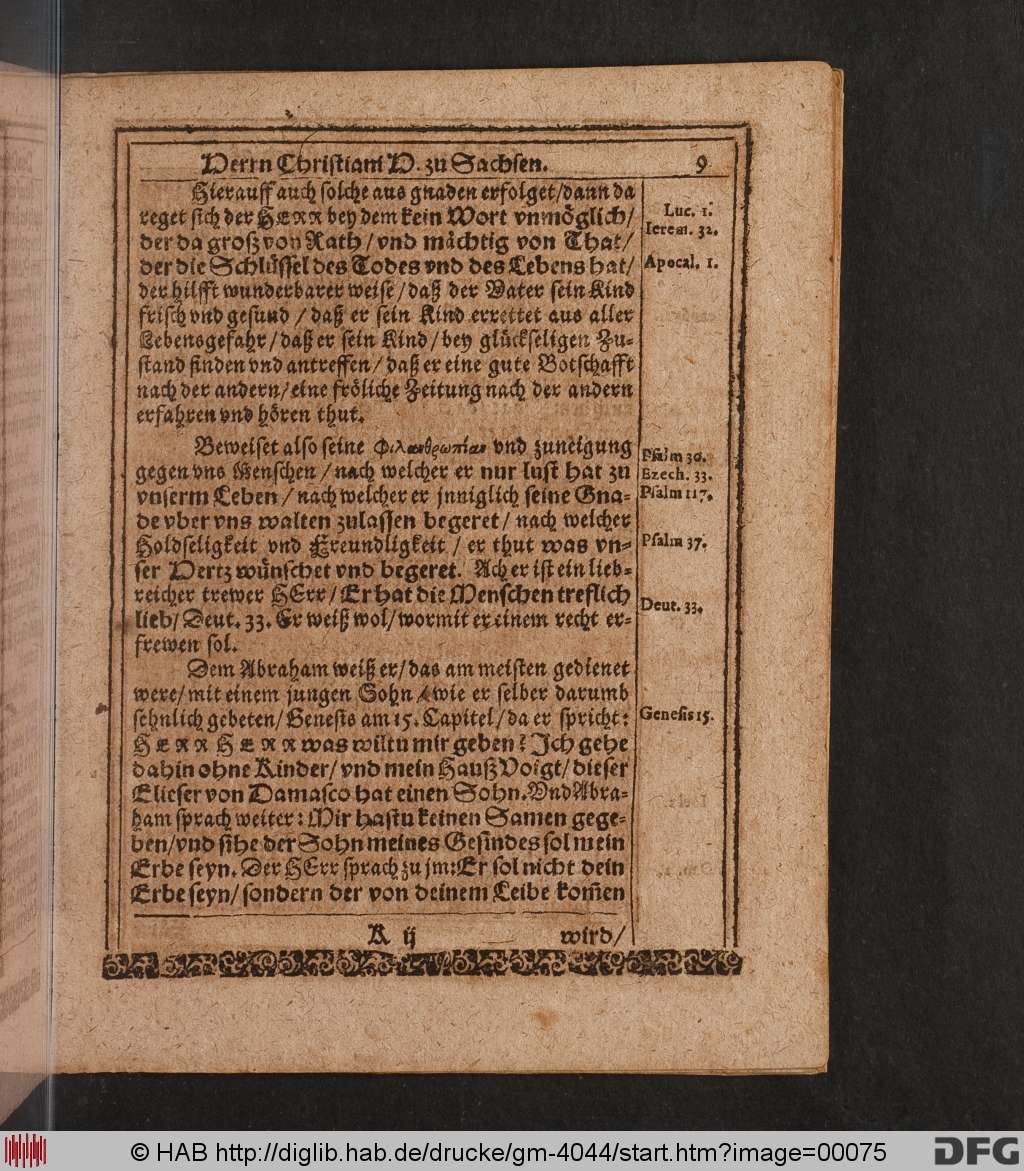 Herrn Christiani H. zu Sachsen. 9
Hierauff auch solche aus gnaden erfolget/dann da
reget sich der HERR bey dem kein Wort vnmöglich/
der da groß von Rath/vnd mächtig von That/
der die Schlüssel des Todes vnd des Lebens hat/
der hilfft wunderbarer weise/daß der Vater sein Kind
frisch vnd gesund/daß er sein Kind errettet aus aller
Lebensgefahr/daß er sein Kind/bey glückseligen Zu-
stand finden vnd antreffen/daß er eine gute Botschafft
nach der andern/eine fröliche Zeitung nach der andern
erfahren vnd hören thut.
Luc. 1.
Ierem. 32.
Apocal. 1.
Beweiset also seine Φιλανθρωπίαν vnd zuneigung
gegen vns Menschen/nach welcher er nur lust hat zu
vnserm Leben/nach welcher er jnniglich seine Gna-
de vber vns walten zulassen begeret/nach welcher
Holdseligkeit vnd Freundligkeit/er thut was vn-
ser Hertz wünschet vnd begeret. Ach er ist ein lieb-
reicher trewer HErr/Er hat die Menschen treflich
lieb/Deut. 33. Er weiß wol/wormit er einem recht er-
frewen sol.
Psalm 30.
Ezech. 33.
Psalm 117.
Psalm 37.
Deut. 33.
Dem Abraham weiß er/das am meisten gedienet
were/mit einem jungen Sohn/wie er selber darumb
sehnlich gebeten/Genesis am 15. Capitel/da er spricht:
HERR HERR was wiltu mir geben? Ich gehe
dahin ohne Kinder/vnd mein Hauß Voigt/dieser
Elieser von Damasco hat einen Sohn. Vnd Abra-
ham sprach weiter: Mir hastu keinen Samen gege-
ben/vnd sihe der Sohn meines Gesindes sol mein
Erbe seyn. Der HErr sprach zu jm: Er sol nicht dein
Erbe seyn/sondern der von deinem Leibe kom̃en
Genesis 15.
K ij wird/
© HAB http://diglib.hab.de/drucke/gm-4044/start.htm?image=00075
DFG